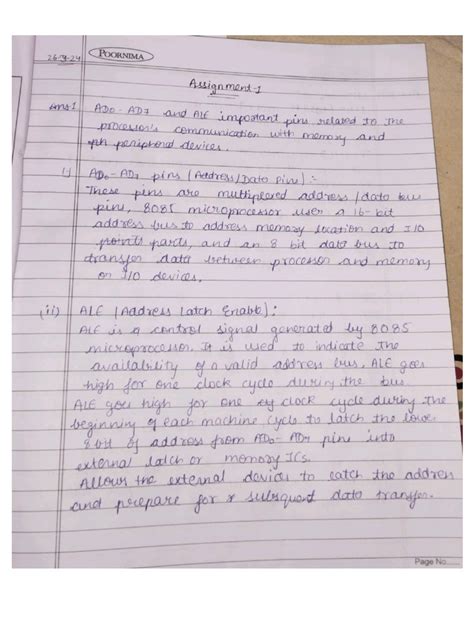 26-3-24 POORNIMA
Assignment-1
Ans1 AD0-AD7 and ALE important pins related to the
processor's communication with memory and
ph peripheral devices.
i) AD0-AD7 pins (Address/Data Pins):-
These pins are multiplexed address/data bus
pins, 8085 microprocessor uses a 16-bit
address bus to address memory location and I/O
points ports, and an 8 bit data bus to
transfer data between processor and memory
or I/O devices.
(ii) ALE (Address Latch Enable):
ALE is a control signal generated by 8085
microprocessor. It is used to indicate the
availability of a valid address bus, ALE goes
high for one clock cycle during the bus.
ALE goes high for one clock cycle during the
beginning of each machine cycle to latch the lower
8 bit of address from AD0-AD7 pins into
external latch or memory ICs.
Allows the external devices to catch the address
and prepare for subsequent data transfer.
Page No......